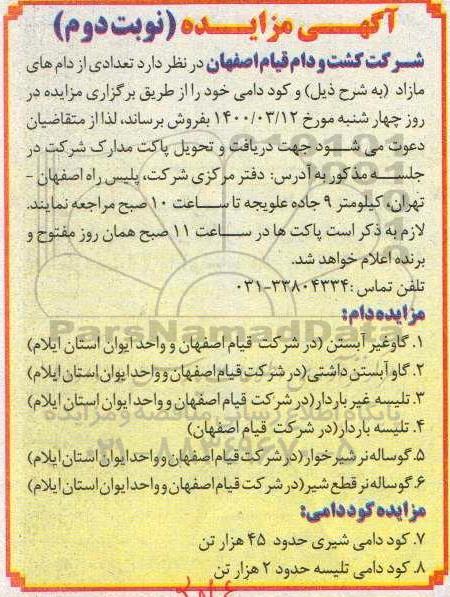 آگهی مزایده (نوبت دوم)
شرکت کشت و دام قیام اصفهان در نظر دارد تعدادی از دام های
مازاد (به شرح ذیل) و کود دامی خود را از طریق برگزاری مزایده در
روز چهار شنبه مورخ ۱۴۰۰/۰۳/۱۲ بفروش برساند، لذا از متقاضیان
دعوت می شود جهت دریافت و تحویل پاکت مدارک شرکت در
جلسه مذکور به آدرس: دفتر مرکزی شرکت، پلیس راه اصفهان -
تهران، کیلومتر ۹ جاده علویجه تا ساعت ۱۰ صبح مراجعه نمایند.
لازم به ذکر است پاکت ها در ساعت ۱۱ صبح همان روز مفتوح و
برنده اعلام خواهد شد.
تلفن تماس: ۳۳۸۰۴۳۳۴-۰۳۱
ParsNamadData
مزایده دام:
۱. گاو غیر آبستن (در شرکت قیام اصفهان و واحد ایوان استان ایلام)
۲. گاو آبستن داشتی (در شرکت قیام اصفهان و واحد ایوان استان ایلام)
۳. تلیسه غیر باردار (در شرکت قیام اصفهان و واحد ایوان استان ایلام)
پایگاه اطلاع رسانی مناقصه و مزایده
۴. تلیسه باردار (در شرکت قیام اصفهان)
۰۲۱-۸۸۳۴۹۶۷۰-۵
۵. گوساله نر شیرخوار (در شرکت قیام اصفهان و واحد ایوان استان ایلام)
۶. گوساله نر قطع شیر (در شرکت قیام اصفهان و واحد ایوان استان ایلام)
مزایده کود دامی:
۷. کود دامی شیری حدود ۴۵ هزار تن
۸. کود دامی تلیسه حدود ۲ هزار تن